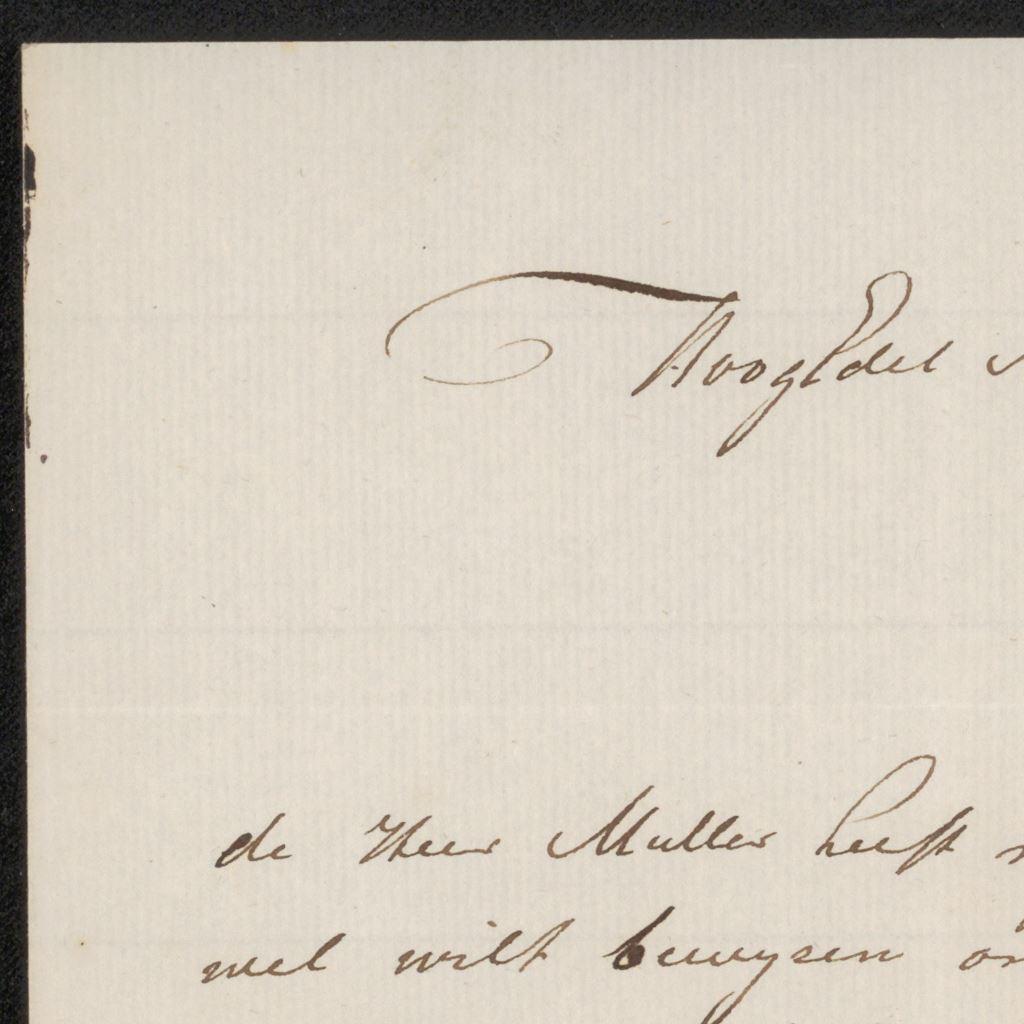 HoogEdel
de Heer Muller heeft
wel wilt bewysen